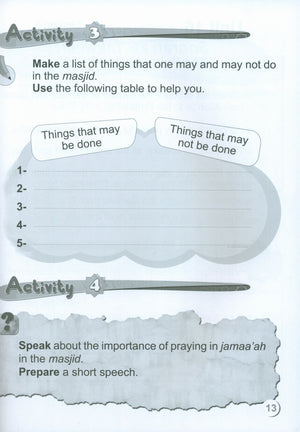 Activity 3
Make a list of things that one may and may not do
in the masjid.
Use the following table to help you.
Things that may
be done
Things that may
not be done
1-
2-
3-
4-
5-
Activity 4
?
Speak about the importance of praying in jamaa'ah
in the masjid.
Prepare a short speech.
13